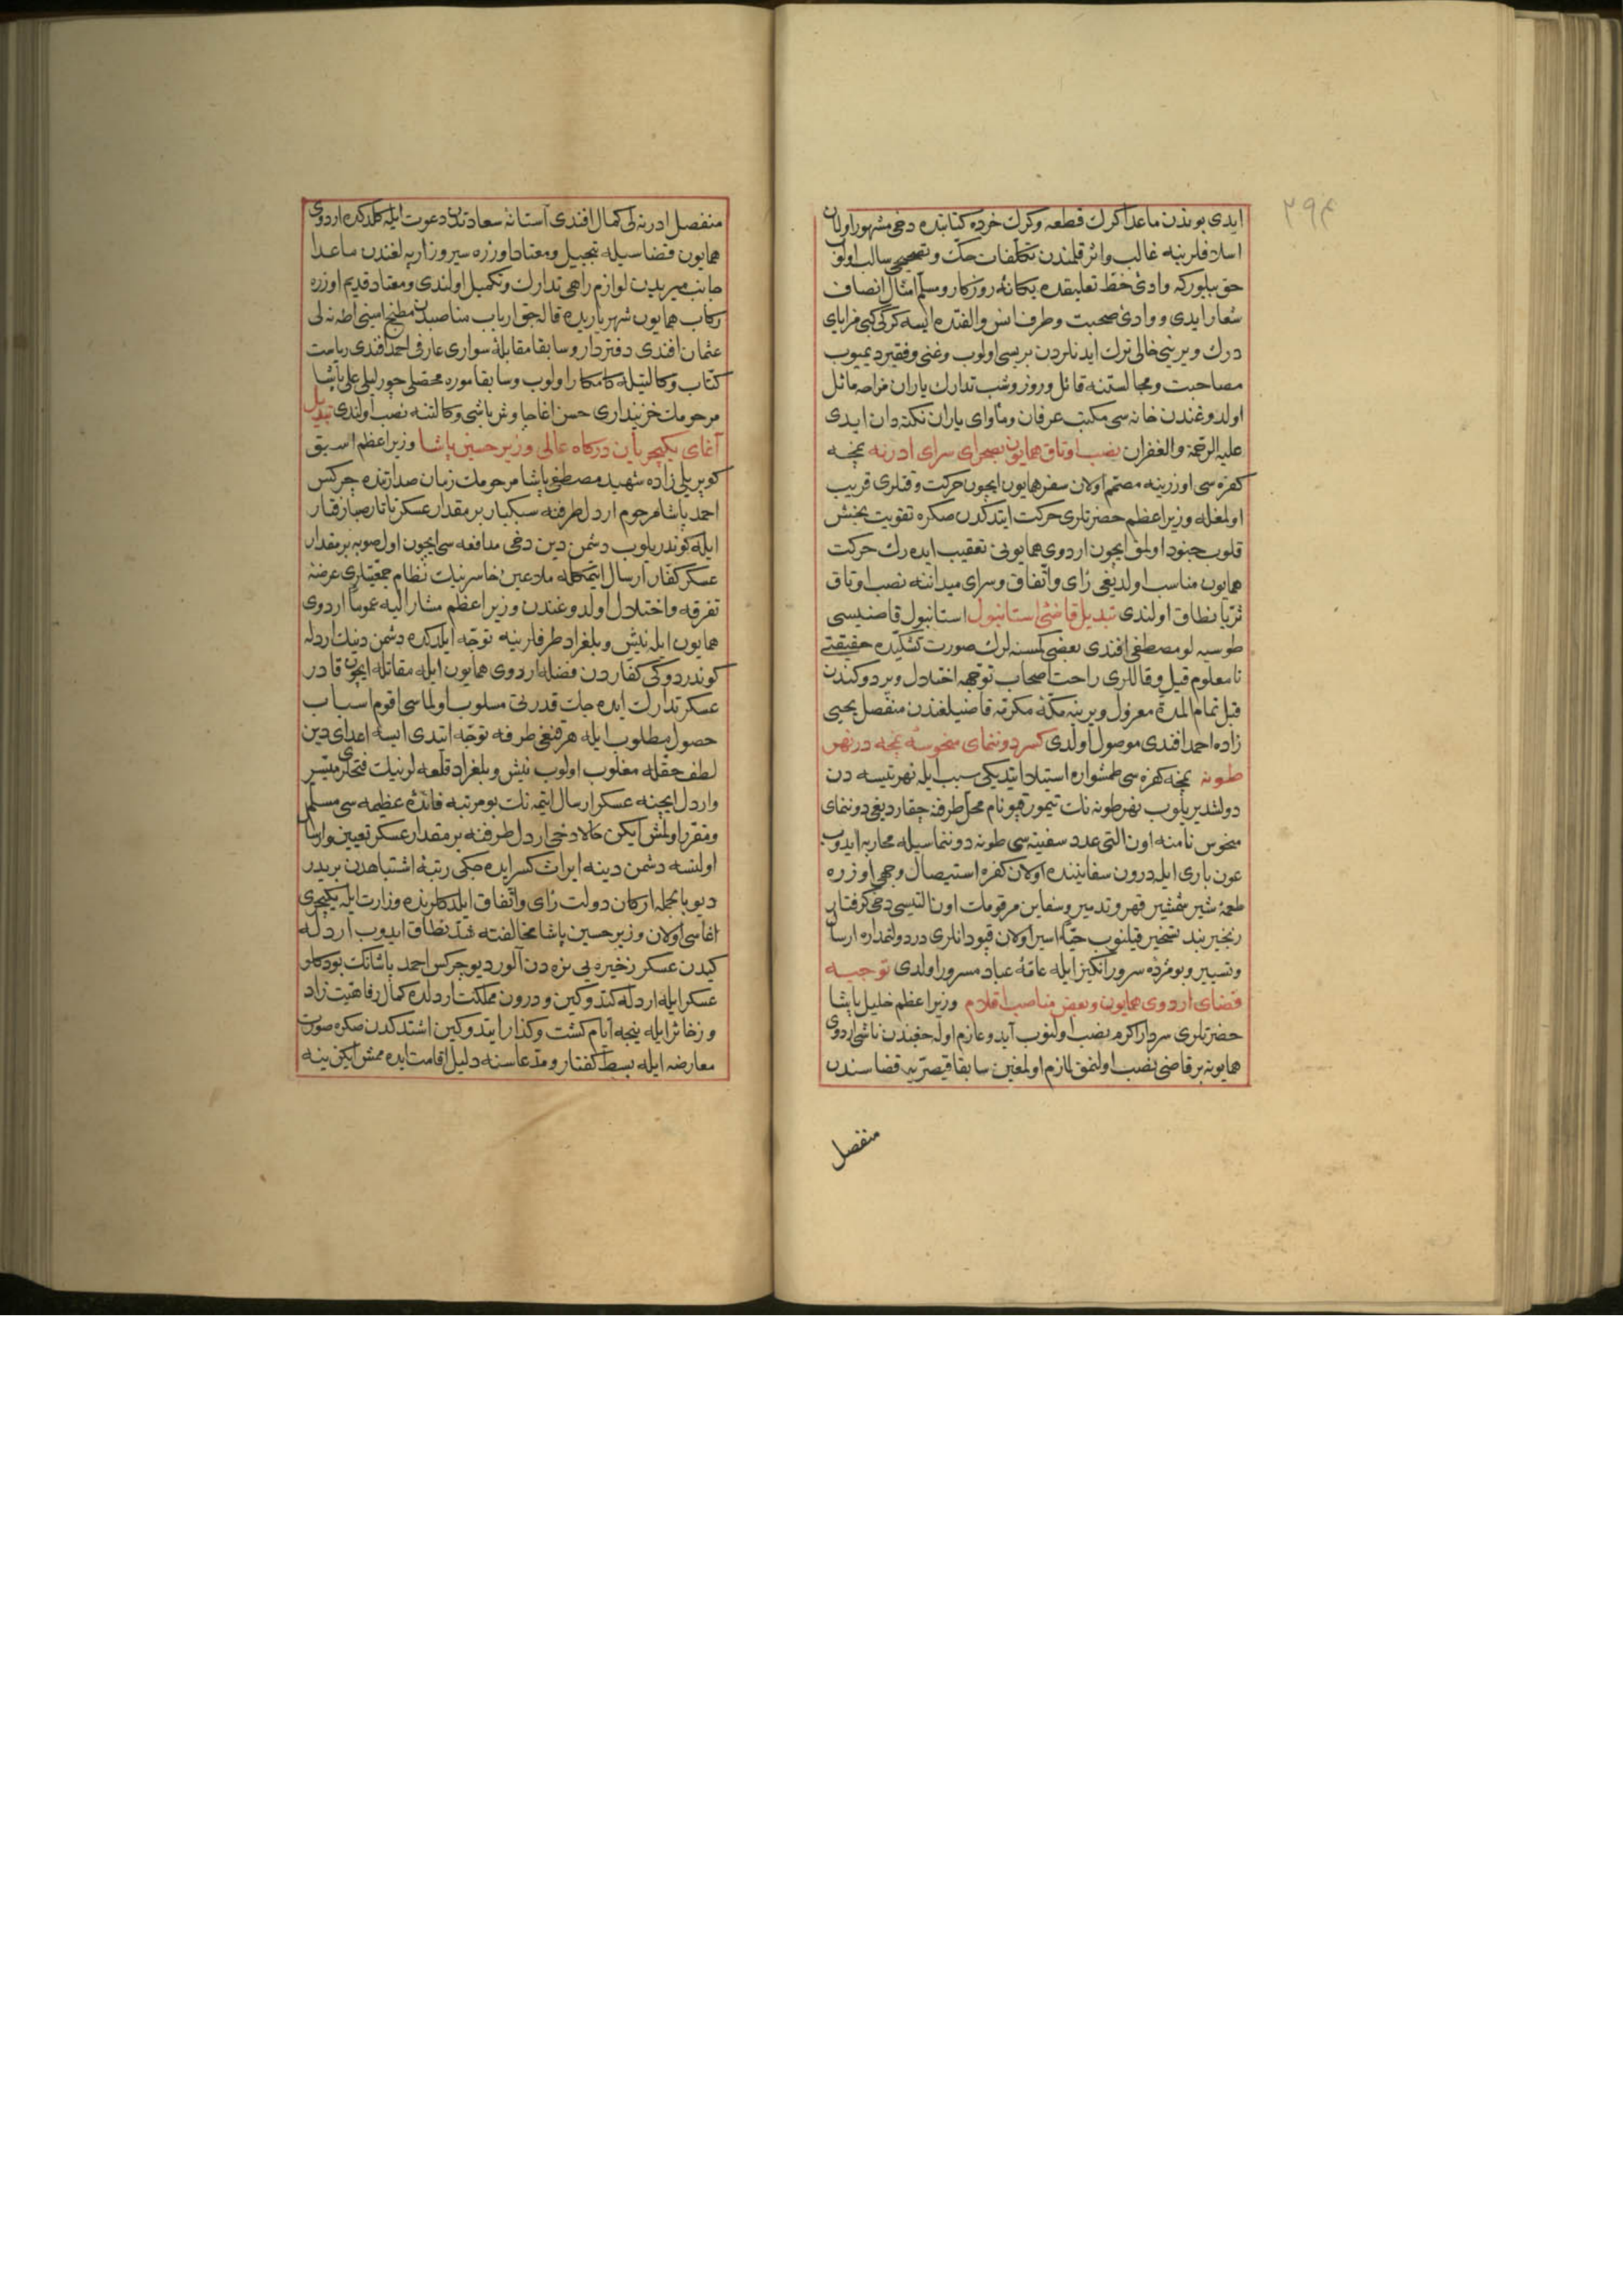 ٢٩٤
ایدی بوندن ماعدا کرك قطعه وکرك خرده کتابتده دخی مشهور اولان
اسلافلرینه غالب واثر قلمندن تکلفات حك وتصحیحی سالب اولوب
حق بیلورکه وادئ خط تعلیقده یکانۀ روزکار ومسلم امثال انصاف
شعار ایدی ووادئ صحبت وطرف انس والفتده ایسه کرکی کبی مزایای
درك ویرینی خالی ترك ایدنلردن بریسی اولوب وغنی وفقیر دیمیوب
مصاحبت ومجالستنه قائل وروز وشب تدارك یاران مزاحه مائل
اولدوغندن خانه سی مکتب عرفان ومأوای یاران نکته دان ایدی
علیه الرحمة والغفران نصب اوتاق همایون بصحرای سرای ادرنه نمچه
کفره سی اوزرینه مصمم اولان سفر همایون ایچون حرکت وقتلری قریب
اولمغله وزیر اعظم حضرتلری حرکت ایتدکدن صکره تقویت بخش
قلوب جنود اولمق ایچون اردوی همایونی تعقیب ایدەرك حرکت
همایون مناسب اولدیغی رأی واتفاق وسرای میداننه نصب اوتاق
ثریا نطاق اولندی تبدیل قاضئ استانبول استانبول قاضیسی
طوسیه لو مصطفی افندی بعضی کمسنه لرك صورت کشیده حقیقتی
نامعلوم قیل وقاللری راحت اصحاب توجهه اختلال ویردوکندن
قبل تمام المدة معزول ویرینه مکۀ مکرمه قاضیلغندن منفصل یحیی
زاده احمد افندی موصول اولدی کسر دوننمای منحوسۀ نمچه در نهر
طونه نمچه کفره سی طمشواره استیلا ایتدیکی سبب ایله نهر تیسه دن
دولشدیریلوب نهر طونه نك تیمورقپو نام محل طرفنه چقاردیغی دوننمای
منحوس نامنه اون التی عدد سفینه سی طونه دوننماسیله محاربه ایدوب
عون باری ایله درون سفاینده اولان کفره استیصال وجهی اوزره
طعمۀ شیر شمشیر قهر وتدمیر وسفاین مرقومك اون التیسی دخی کرفتار
زنجیر بند تسخیر قیلنوب حیًّا اسیر اولان قپودانلری در دولتمداره ارسال
وتسییر وبو مژدۀ سرور انکیز ایله عامۀ عباد مسرور اولدی توجیه
قضای اردوی همایون وبعض مناصب اقلام وزیر اعظم خلیل پاشا
حضرتلری سردار اکرم نصب اولنوب آیدوعازم اوله جغندن ناشی اردوی
همایونه بر قاضی نصب اولنمق لازم اولمغین سابقا قیصریه قضاسندن
منفصل
منفصل ادرنه لی کمال افندی آستانۀ سعادتدن دعوت ایله کلدکده اردوی
همایون قضاسیله تبجیل ومعتاد اوزره سیروز ارپه لغندن ماعدا
جانب میریدن لوازم راهی تدارك وتکمیل اولندی ومعتاد قدیم اوزره
رکاب همایون شهریاریده قالجق ارباب مناصبدن مطبخ امینی اطنه لی
عثمان افندی دفتردار وسابقا مقابلۀ سواری عارفی احمد افندی ریاست
کتّاب وکالتیله کامکار اولوب وسابقا موره محصلی چورلیلی علی پاشا
مرحومك خزینداری حسن اغا چاوش باشی وکالتنه نصب اولندی تبدیل
آغای یکیچریان درکاه عالی وزیر حسین پاشا وزیر اعظم اسبق
کوپریلی زاده شهید مصطفی پاشا مرحومك زمان صدارتنده چرکس
احمد پاشا مرحوم اردل طرفنه سبکبار بر مقدار عسکر تاتار صبارفتار
ایله کوندریلوب دشمن دین دخی مدافعه سی ایچون اول صوبه بر مقدار
عسکر کفار ارسال ایتمکله ملاعین خاسرینك نظام جمعیتلری عرضۀ
تفرقه واختلال اولدوغندن وزیر اعظم مشار الیه عموما اردوی
همایون ایله نیش وبلغراد طرفلرینه توجه ایلدکده دشمن دینك اردله
کوندردوکی کفاردن فضله اردوی همایون ایله مقاتله ایچون قادر
عسکر تدارك ایده جك قدرتی مسلوب اولماسی اقوم اسباب
حصول مطلوب ایله هر قنغی طرفه توجه ایتدی ایسه اعدای دین
لطف حقله مغلوب اولوب نیش وبلغراد قلعه لرینك فتحلری میسّر
واردل ایچنه عسکر ارسال ایتمه نك بو مرتبه فائدۀ عظیمه سی مسلم
ومقرر اولمش ایکن حالا دخی اردل طرفنه بر مقدار عسکر تعیین وارسال
اولنسه دشمن دینه ایراث کسر ایده جکی رتبۀ اشتباهدن بریدر
دیو بالجمله ارکان دولت رأی واتفاق ایلدکلرنده وزارت ایله یکیچری
اغاسی اولان وزیر حسین پاشا مخالفته شدّ نطاق ایدوب اردله
کیدن عسکر ذخیره یی نره دن آلور دیو چرکس احمد پاشانك بو دکلو
عسکر ایله اردله کتدوکین ودرون مملکت اردلده کمال رفاهیت زاد
وذخائر ایله نیجه ایام کشت وکذار ایتدوکین اشتدکدن صکره صورت
معارضه ایله بسط کفتار ومدّعاسنه دلیل اقامت ایده ممش ایکن ینه